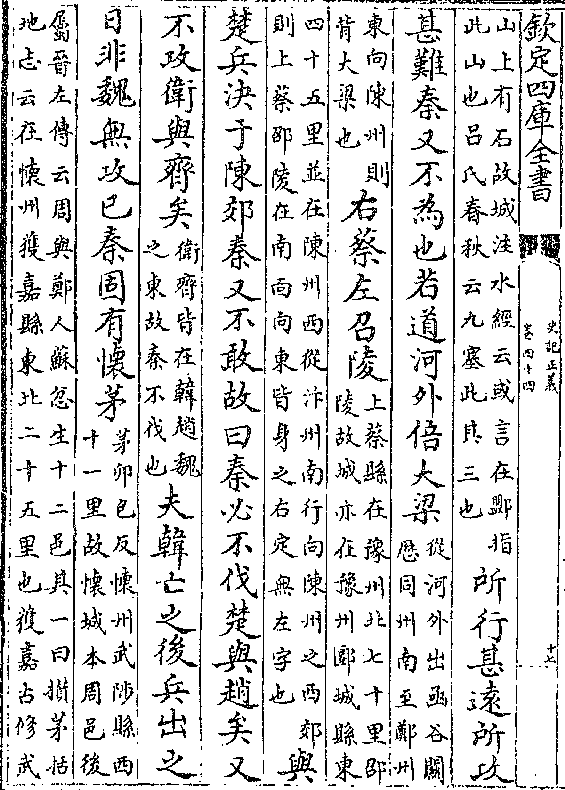 欽定四庫全書
史記正義
卷四十四
十七
山上有石故城注水經云或言在鄳指
此山也呂氏春秋云九塞此其三也
所行甚遠所攻
甚難秦又不為也若道河外倍大梁
從河外出函谷關
歷同州南至鄭州
東向陳州則
背大梁也
右蔡左召陵
上蔡縣在豫州北七十里邵
陵故城亦在豫州郾城縣東
四十五里並在陳州西從汴州南行向陳州之西郊
則上蔡邵陵在南面向東皆身之右定無左字也
與
楚兵決于陳郊秦又不敢故曰秦必不伐楚與趙矣又
不攻衛與齊矣
衛齊皆在韓趙魏
之東故秦不伐也
夫韓亡之後兵出之
日非魏無攻已秦固有懷茅
茅卯包反懷州武陟縣西
十一里故懷城本周邑後
屬晉左傳云周與鄭人蘇忿生十二邑其一曰攢茅括
地志云在懷州獲嘉縣東北二十五里也獲嘉古修武